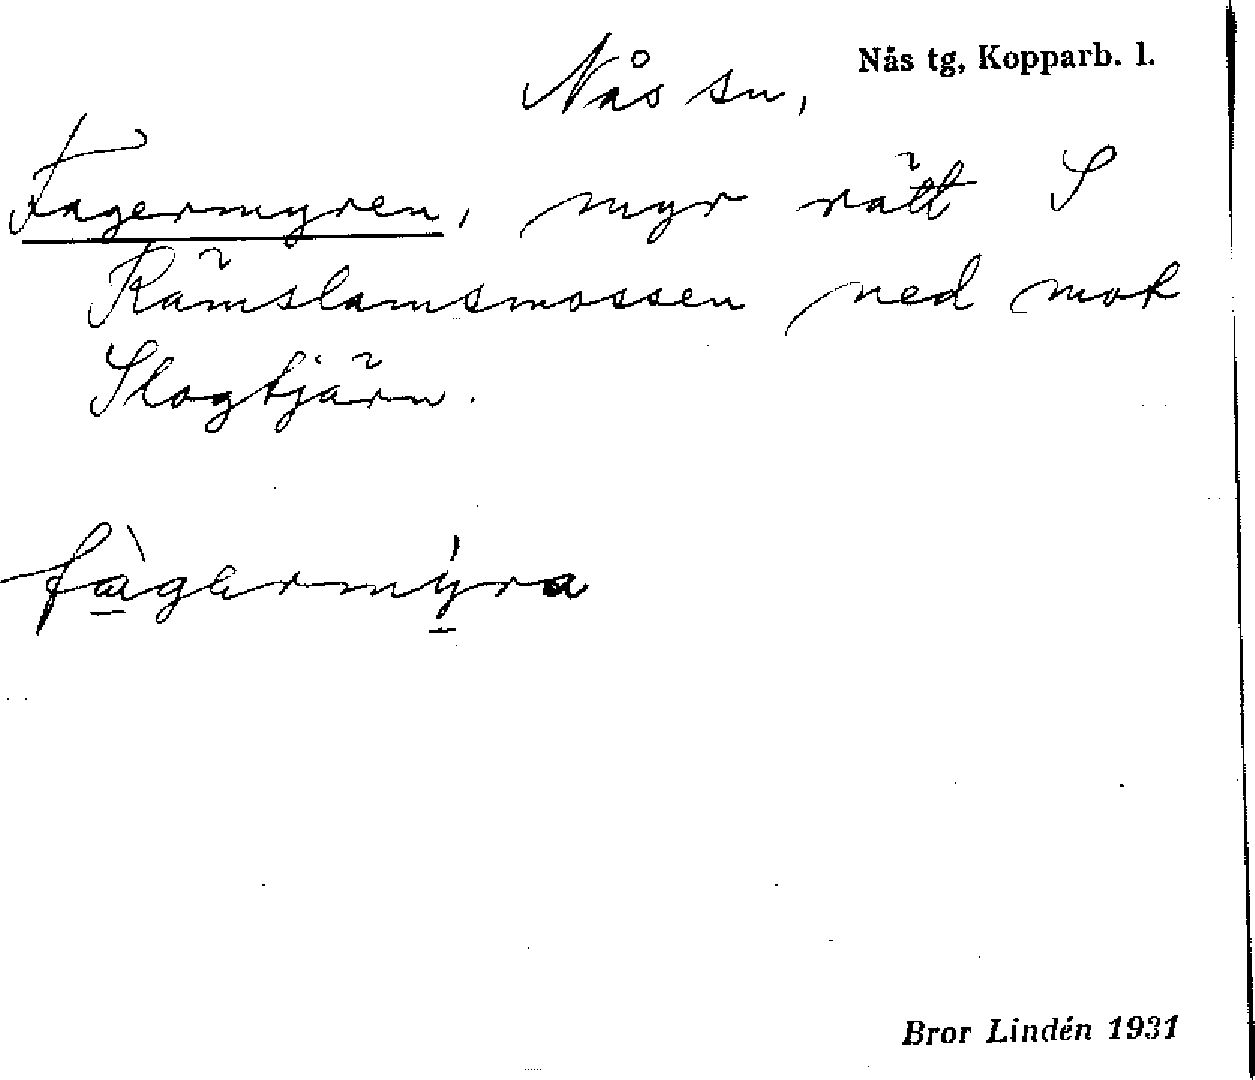 Nås tg, Kopparb. l.
Nås sn,
Fagermyren, myr rätt S
Rämslamsmossen ned mot
Slogtjärn.
fàgermýra
Bror Lindén 1931